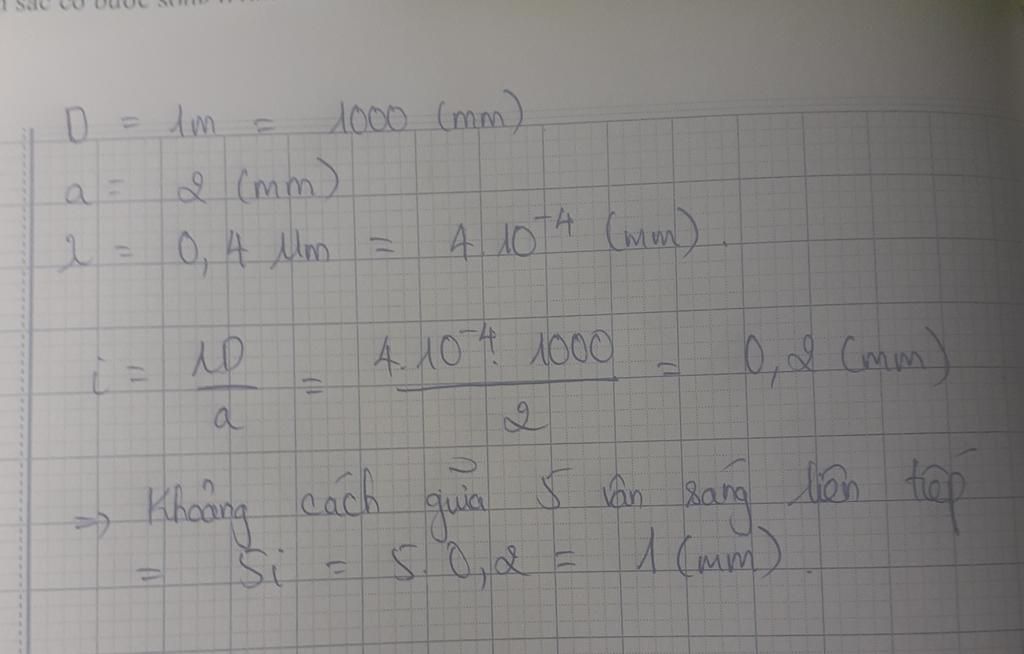 sắc có bước sóng
D = 1m = 1000 (mm)
a = 2 (mm)
λ = 0,4 µm = 4.10⁻⁴ (mm).
i = λD / a = 4.10⁻⁴. 1000 / 2 = 0,2 (mm)
=> Khoảng cách giữa 5 vân sáng liên tiếp
= 5i = 5. 0,2 = 1 (mm).